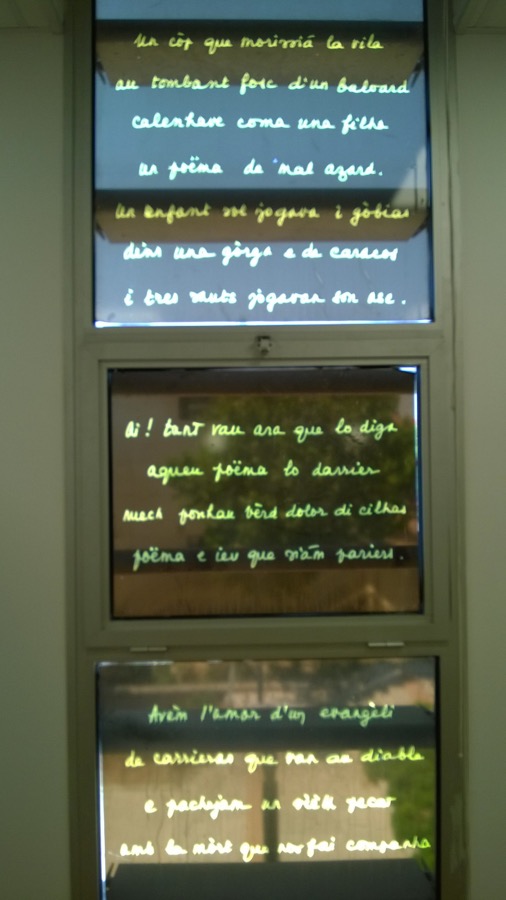 Un còp que morissiá la vila
au tombant fosc d'un baloard
calenhave coma una filha
un poëma de mal azard.
Un enfant sol jogava i gòbias
dins una gòrga e de caracos
i tres sauts jogavan son ase.
Ai! tant vau ara que lo diga
aqueu poëma lo darrier
mech ponhau vèrd dolor di cilhas
poëma e ieu que n'am pariers.
Avèm l'amor d'un evangèli
de carrieras que van au diable
e pachejam un vièlh pecat
amb la mòrt que nos fai companha